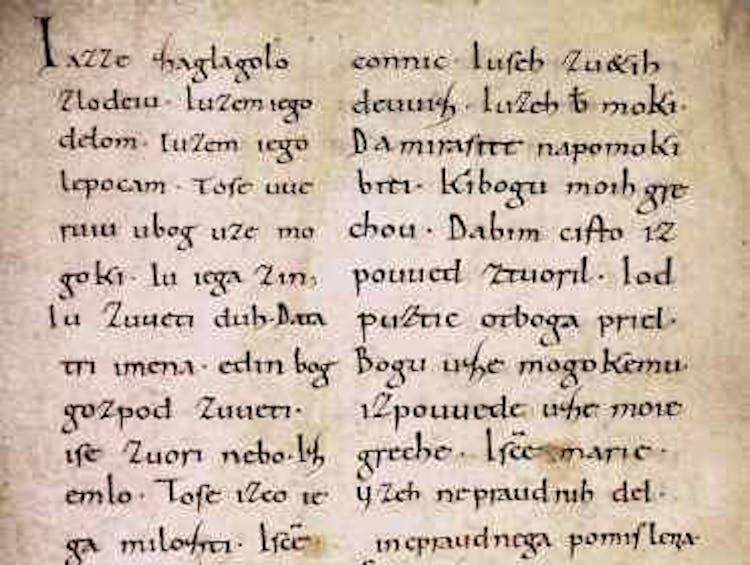 Iazze zaglagolo
zlodeiu · Iuzem iego
delom · Iuzem iego
lepocam · Tose uue
ruiu ubog uze mo
goki · Iu iega zin,
Iu zuueti duh · Data
tri imena · edin bog
gozpod zuueti ·
ise zuori nebo · Iz
emlo · Tose izco ie
ga milosti · Isc̄e
connic · Iuseh zu&ih
deuuiz · Iuzeh t̄b moki ·
Da mirasite napomoki
biti · Kibogu moih gre
chou · Dabim cisto iz
pouued ztuoril · Iod
puztic otboga priel ·
Bogu uze mogokemu ·
izpouuede uze moie
greche · Isc̄e marie ·
uzeh nepraudnih del ·
inepraudnega pomislena ·